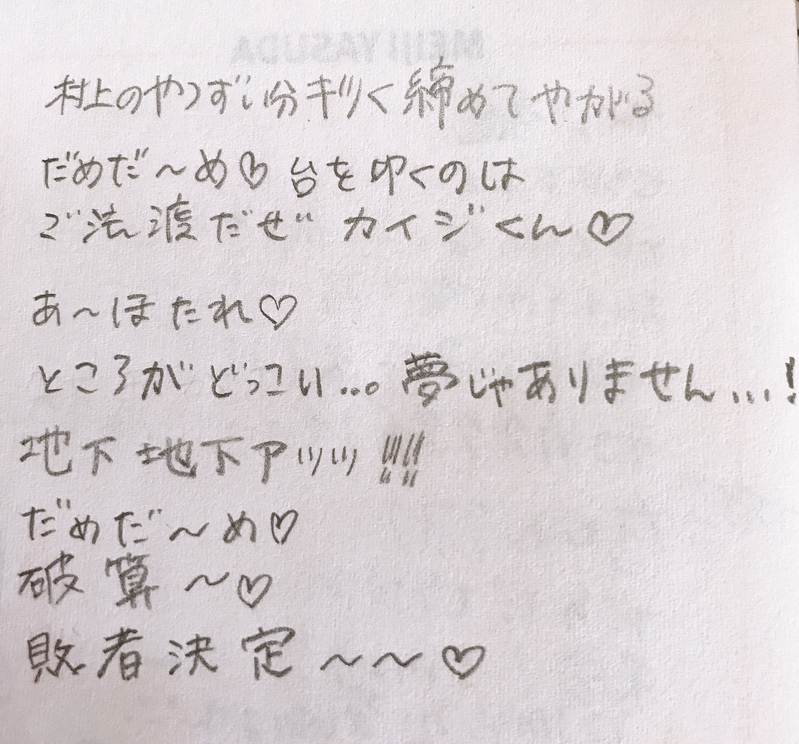 MEIJI YASUDA
村上のやつずい分キツく締めてやがる
だめだ〜め♡ 台を叩くのは
ご法渡だぜ カイジくん♡
あ〜ほたれ♡
ところがどっこい...。夢じゃありません...!
地下地下アッッ!!!!
だめだ〜め♡
破算〜♡
敗者決定〜〜♡